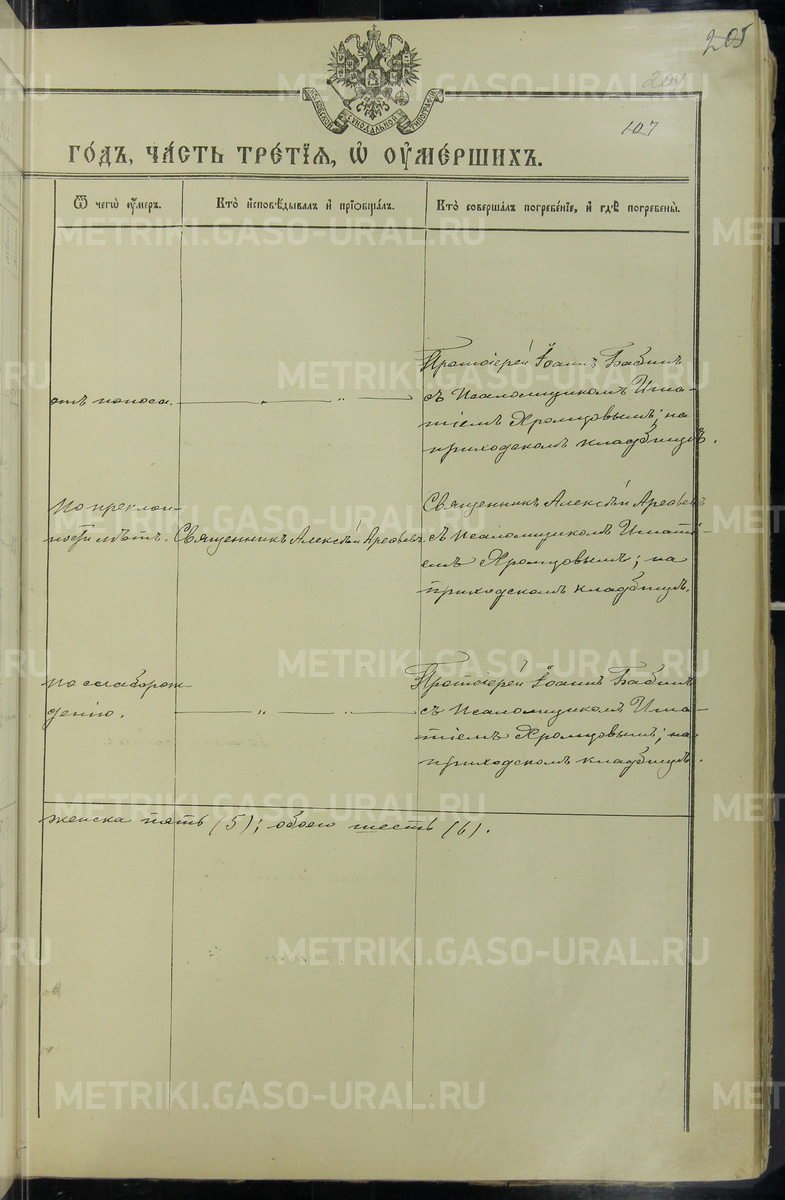 205
107
МОСКОВСКОЙ СѴНОДАЛЬНОЙ ТИПОГРАФІИ
ГО́ДЪ, ЧА́СТЬ ТРЕ́ТІѦ, Ѡ ОУМЕ́РШИХЪ.
Ѿ чегѡ̀ ᲂу҆́меръ.
Кто̀ и҆сповѣ́дывалъ и҆ прїѡбща́лъ.
Кто̀ соверша́лъ погребе́нїе, и҆ гдѣ̀ погребены̀.
отъ поноса.
— „ — „ —
Протоіерей Іоаннъ Бабинъ
съ Псаломщикомъ Игна-
тіемъ Хромцовымъ; на
приходскомъ кладбищѣ.
по преклон-
ности лѣтъ.
Священникъ Алексѣй Арефьевъ.
Священникъ Алексѣй Арефьевъ
съ Псаломщикомъ Игнаті-
емъ Хромцовымъ; на
приходскомъ кладбищѣ.
по слаборож-
денію.
— „ — „ —
Протоіерей Іоаннъ Бабинъ
съ Псаломщикомъ Игна-
тіемъ Хромцовымъ; на
приходскомъ кладбищѣ.
женска пять (5); обоего шесть (6).
METRIKI.GASO-URAL.RU